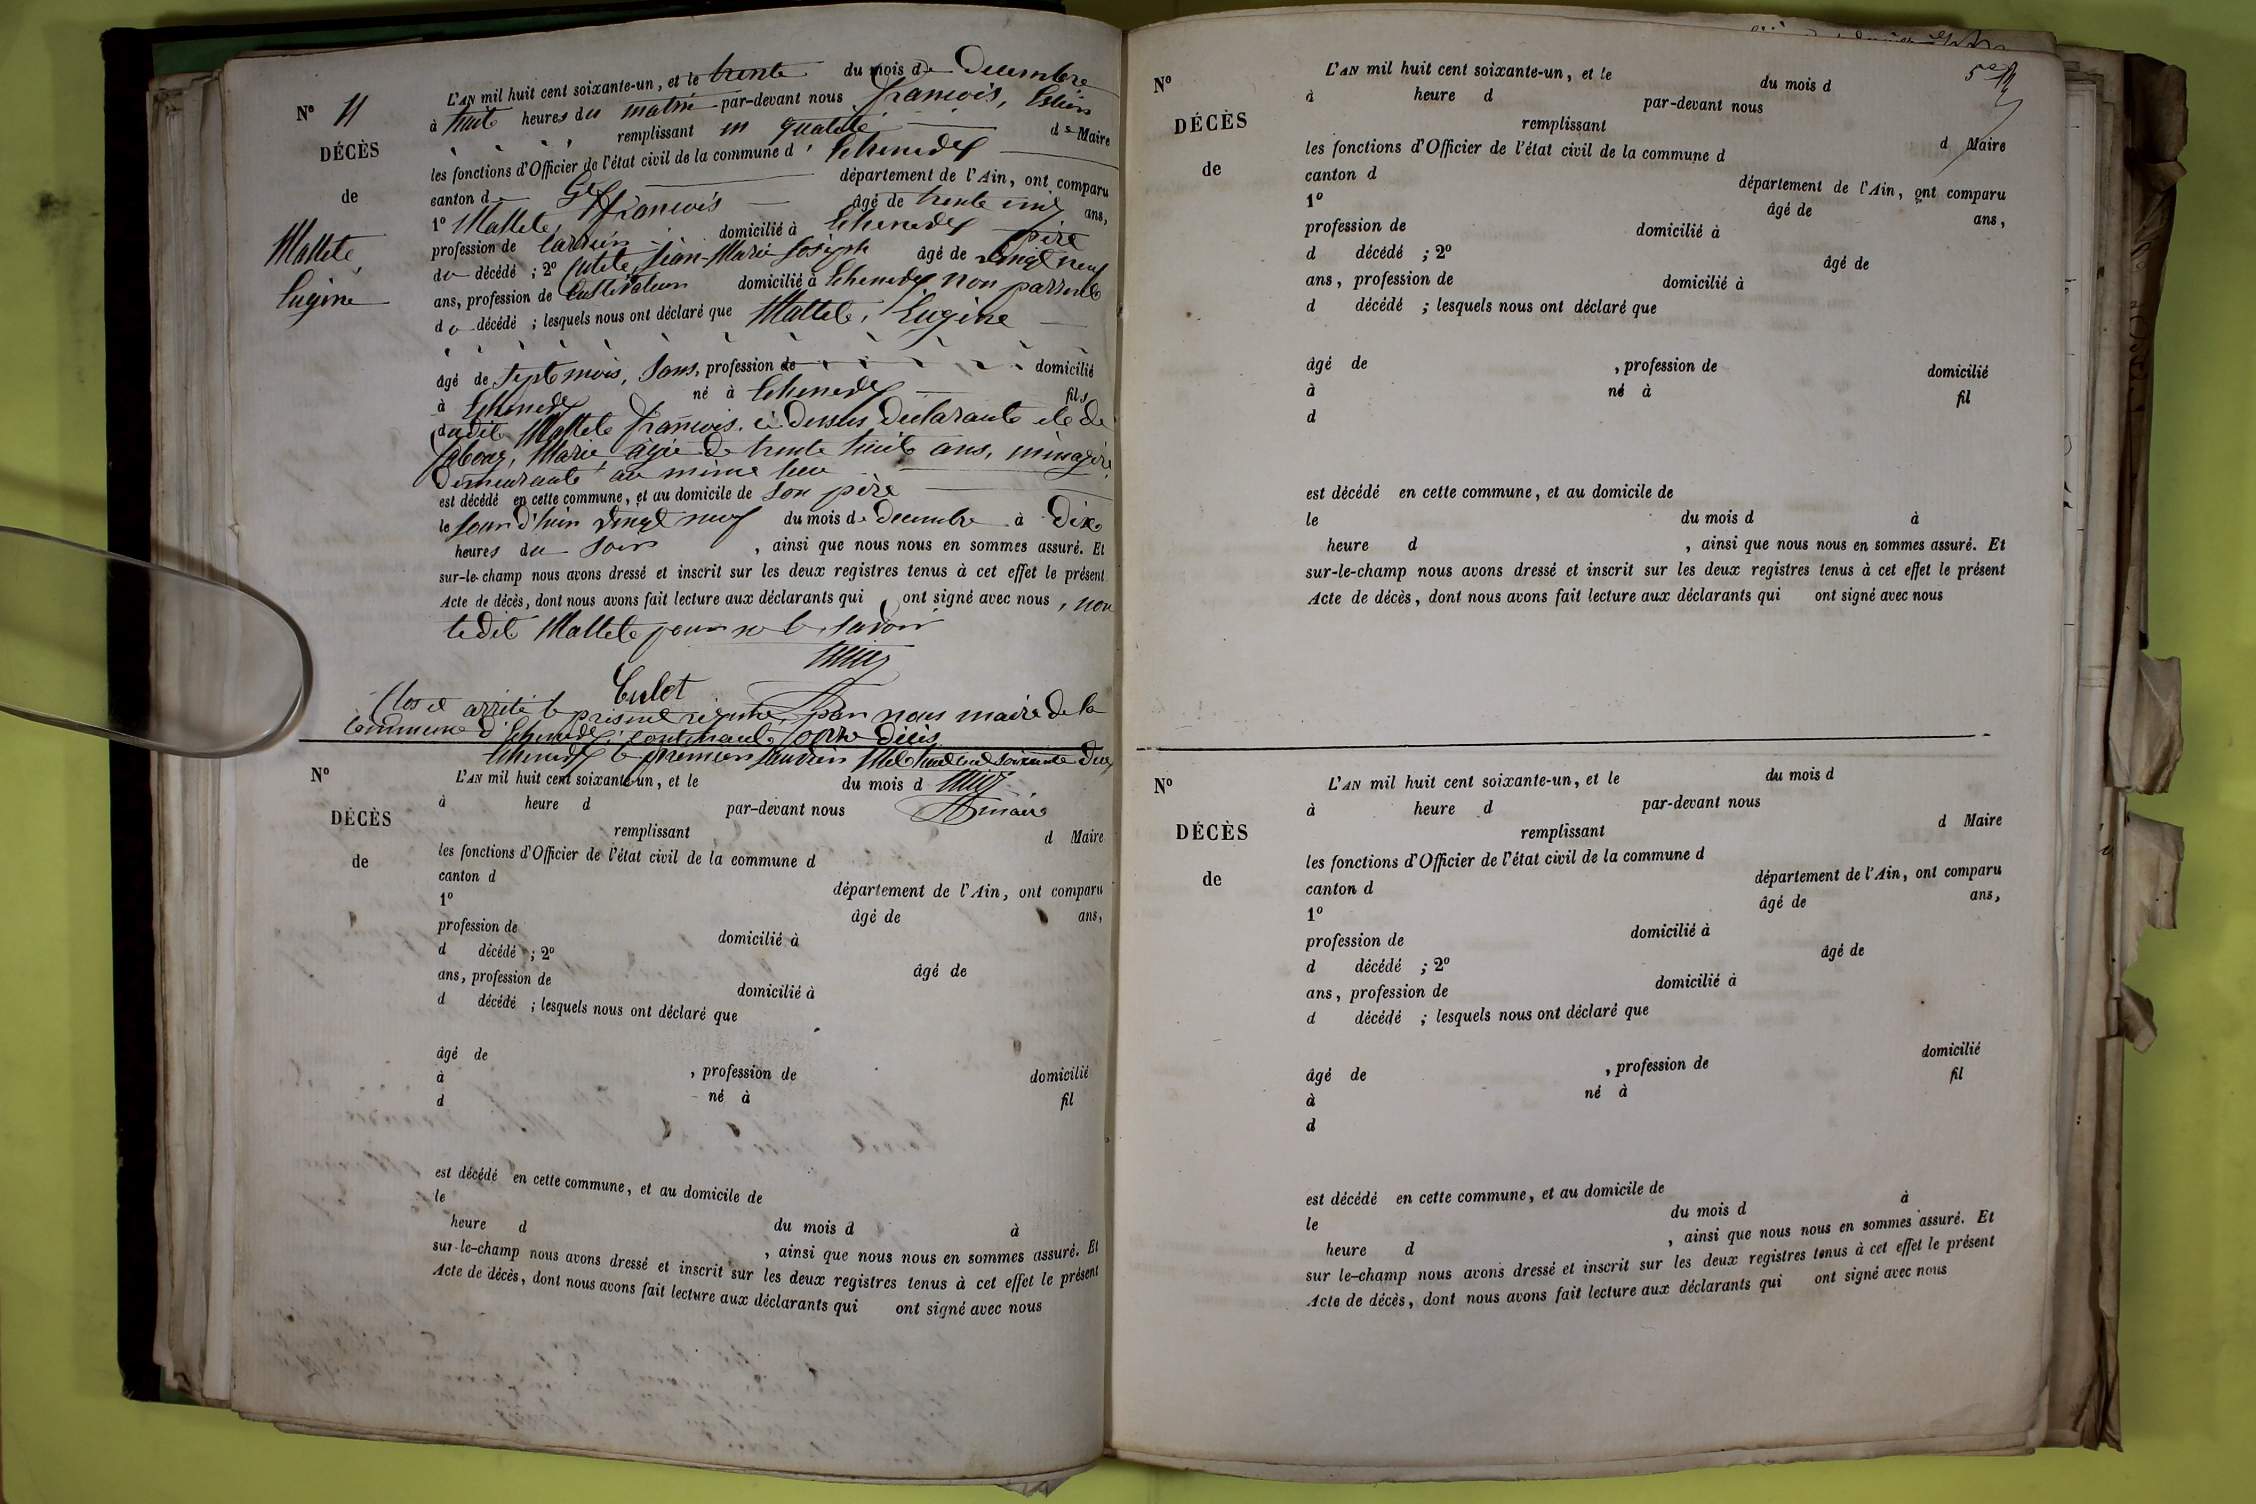 N° 11
DÉCÈS
de
Mattel
Eugène
L'AN mil huit cent soixante-un, et le trente du mois de Decembre
à huit heures du matin par-devant nous François,
remplissant en qualité de Maire
les fonctions d'Officier de l'état civil de la commune d'Echenevex
canton de Gex département de l'Ain, ont comparu
1° Mattel, François âgé de trente cinq ans,
profession de domicilié à Echenevex père
du décédé ; 2° Jean-Marie Joseph âgé de vingt neuf
ans, profession de Cultivateur domicilié à Echenevex non parent
du décédé ; lesquels nous ont déclaré que Mattel, Eugène
âgé de sept mois, sans, profession de domicilié
à Echenevex né à Echenevex fils
dudit Mattel François, ci dessus déclarant et de
Marie âgée de trente huit ans, ménagère,
demeurant au même lieu
est décédé en cette commune, et au domicile de son père
le jour d'hier vingt neuf du mois de decembre à Dix
heures du soir , ainsi que nous nous en sommes assuré. Et
sur-le-champ nous avons dressé et inscrit sur les deux registres tenus à cet effet le présent
Acte de décès, dont nous avons fait lecture aux déclarants qui ont signé avec nous, non
ledit Mattel pour ne le savoir
Culet
Clos et arrêté le présent registre, par nous maire de la
commune d'Echenevex, contenant onze décès
Echenevex le premier Janvier Mil huit cent soixante deux
maire
N°
DÉCÈS
de
L'AN mil huit cent soixante-un, et le du mois d
à heure d par-devant nous
remplissant d Maire
les fonctions d'Officier de l'état civil de la commune d
canton d département de l'Ain, ont comparu
1° âgé de ans,
profession de domicilié à
d décédé ; 2° âgé de
ans, profession de domicilié à
d décédé ; lesquels nous ont déclaré que
âgé de , profession de domicilié
à né à fil
d
est décédé en cette commune, et au domicile de
le du mois d à
heure d , ainsi que nous nous en sommes assuré. Et
sur-le-champ nous avons dressé et inscrit sur les deux registres tenus à cet effet le présent
Acte de décès, dont nous avons fait lecture aux déclarants qui ont signé avec nous
N°
DÉCÈS
de
L'AN mil huit cent soixante-un, et le du mois d
à heure d par-devant nous
remplissant d Maire
les fonctions d'Officier de l'état civil de la commune d
canton d département de l'Ain, ont comparu
1° âgé de ans,
profession de domicilié à
d décédé ; 2° âgé de
ans, profession de domicilié à
d décédé ; lesquels nous ont déclaré que
âgé de , profession de domicilié
à né à fil
d
est décédé en cette commune, et au domicile de
le du mois d à
heure d , ainsi que nous nous en sommes assuré. Et
sur-le-champ nous avons dressé et inscrit sur les deux registres tenus à cet effet le présent
Acte de décès, dont nous avons fait lecture aux déclarants qui ont signé avec nous
N°
DÉCÈS
de
L'AN mil huit cent soixante-un, et le du mois d
à heure d par-devant nous
remplissant d Maire
les fonctions d'Officier de l'état civil de la commune d
canton d département de l'Ain, ont comparu
1° âgé de ans,
profession de domicilié à
d décédé ; 2° âgé de
ans, profession de domicilié à
d décédé ; lesquels nous ont déclaré que
âgé de , profession de domicilié
à né à fil
d
est décédé en cette commune, et au domicile de
le du mois d à
heure d , ainsi que nous nous en sommes assuré. Et
sur le-champ nous avons dressé et inscrit sur les deux registres tenus à cet effet le présent
Acte de décès, dont nous avons fait lecture aux déclarants qui ont signé avec nous